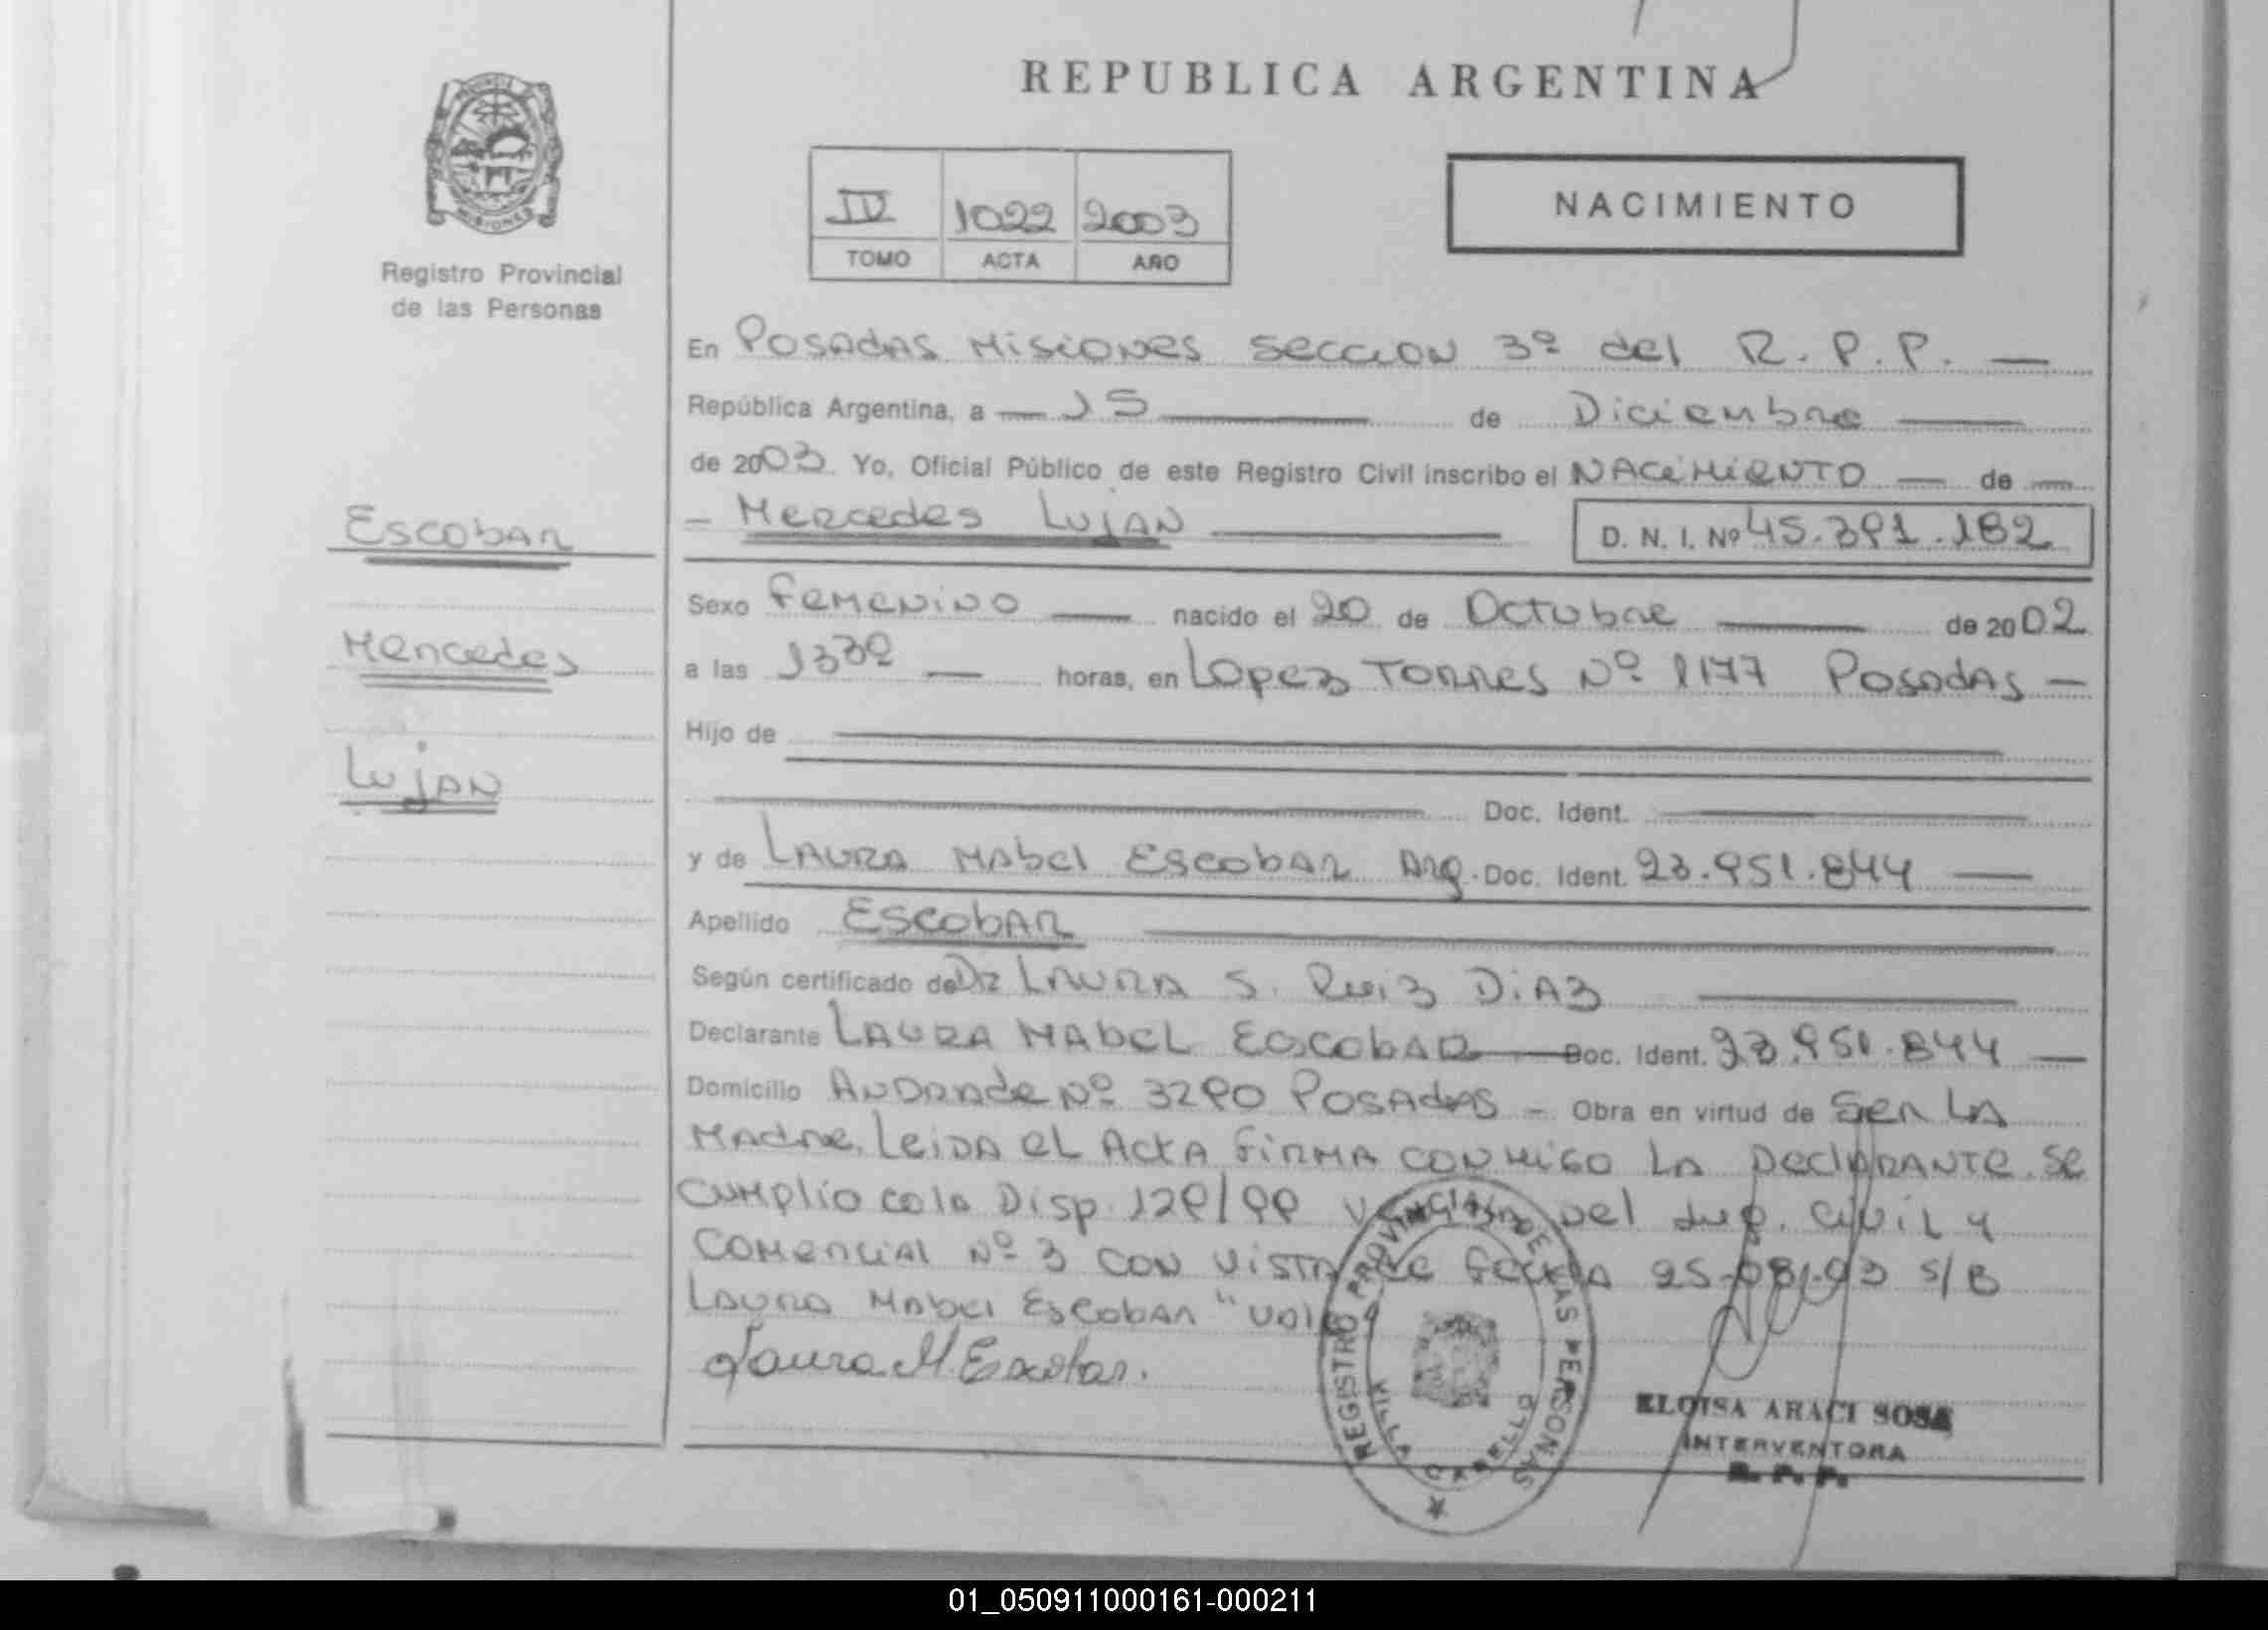 REPUBLICA ARGENTINA
PROVINCIA
MISIONES
Registro Provincial
de las Personas
IV 1022 2003
TOMO ACTA AÑO
NACIMIENTO
En Posadas Misiones Seccion 3º del R.P.P. —
República Argentina, a — 15 — de Diciembre —
de 2003 Yo, Oficial Público de este Registro Civil inscribo el Nacimiento — de —
— Mercedes Lujan — D. N. I. Nº 45.391.182
Escobar
Mercedes
Lujan
Sexo Femenino — nacido el 20 de Octubre — de 2002
a las 1330 — horas, en Lopez Torres Nº 1177 Posadas —
Hijo de —
— Doc. Ident. —
y de Laura Mabel Escobar Arg. Doc. Ident. 23.951.844 —
Apellido Escobar —
Según certificado de Dr Laura S. Ruiz Diaz —
Declarante Laura Mabel Escobar — Doc. Ident. 23.951.844 —
Domicilio Andrade Nº 3290 Posadas — Obra en virtud de Ser la
Madre. Leida el Acta firma conmigo la Declarante. Se
cumplio co la Disp. 129/99 del Juz. Civil y
Comercial Nº 3 con vista de fecha 25-08-03 S/B
Laura Mabel Escobar "Vale"
Laura M. Escobar.
REGISTRO PROVINCIAL DE LAS PERSONAS
VILLA CABELLO
ELOISA ARACI SOSA
INTERVENTORA
R. P. P.
01_050911000161-000211